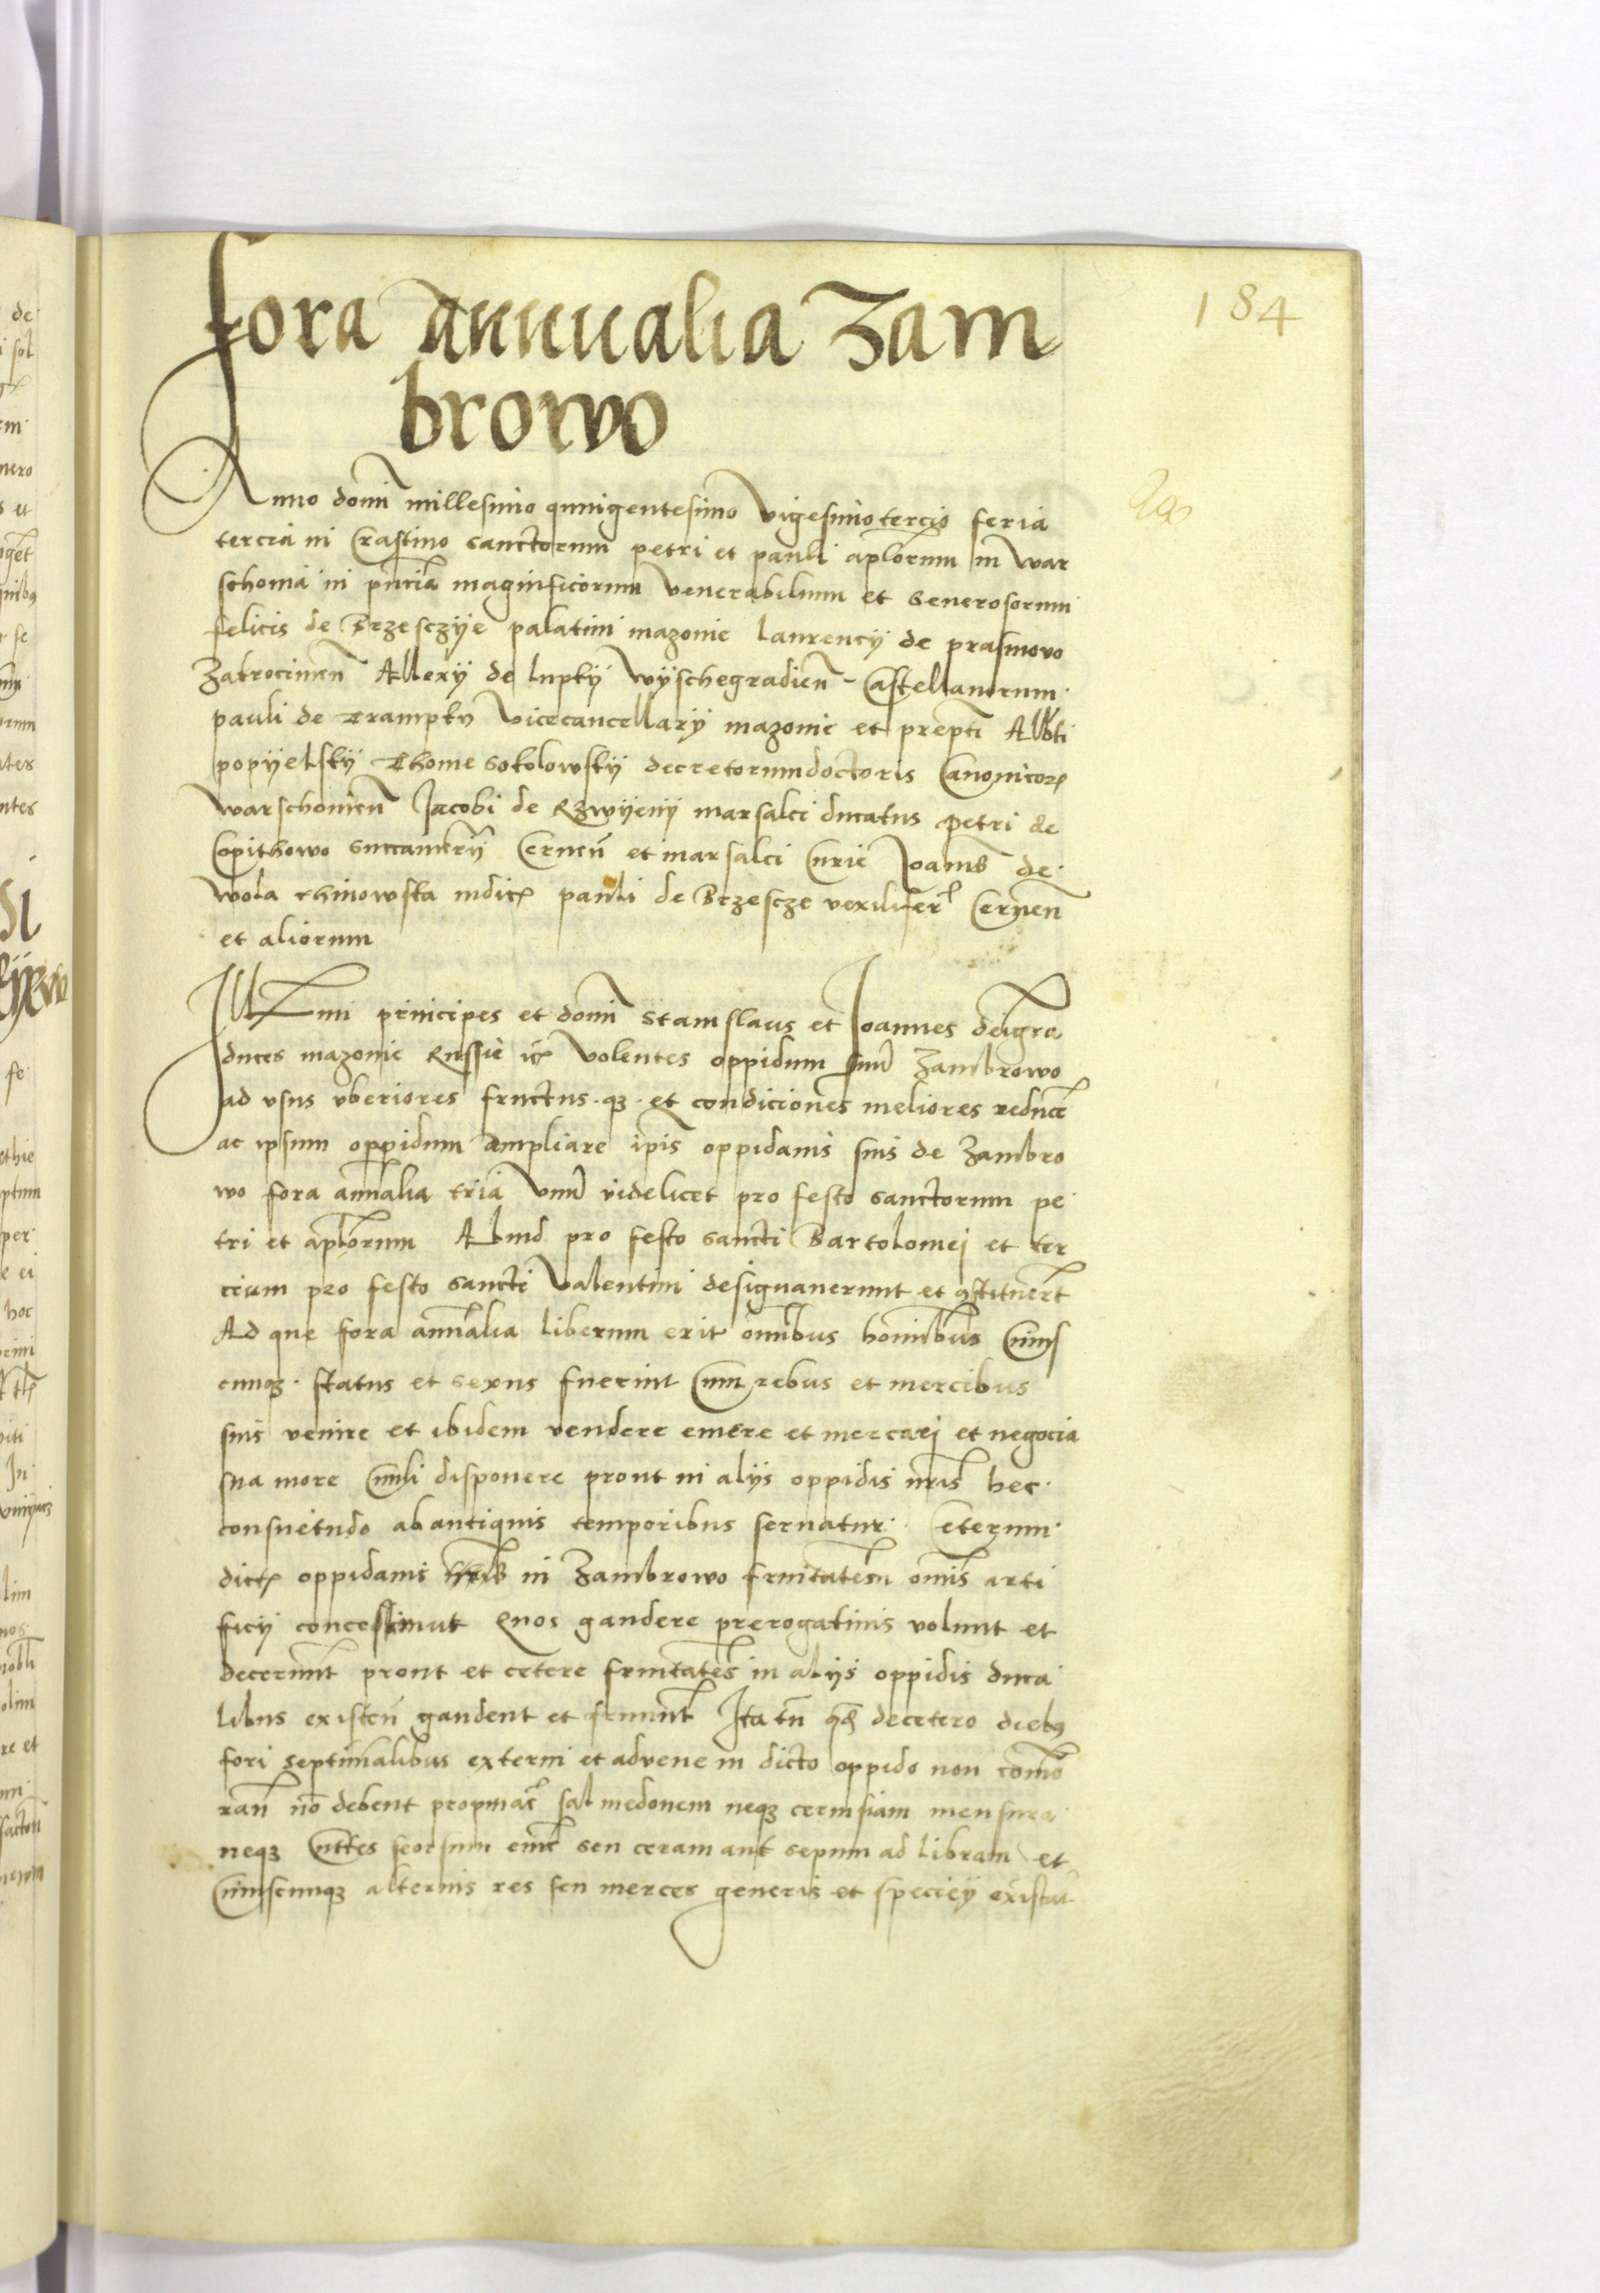 184
fora annualia Zam
browo
Anno domi millesimo quingentesimo vigesimotercio feria
tercia in Crastino sanctorum petri et pauli aplorum in War
schouia in pncia magnificorum venerabilium et Generosorum
felicis de Brzesczije palatini mazouie laurencij de prasmowo
Zakrocimen Allexij de lupky Wijschegradien Castellanorum
pauli de Trampky vicecancellarij mazouie et prepti Albti
popijelskij Thome sokolowskij decretorum doctoris Canonicor
Warschouien Jacobi de Rzwijenij marsalci ducatus petri de
Copithowo succamerij Cernen et marsalci Curie Joanis de
Wola Chinowska iudic pauli de Brzescze vexilifer Cernen
et aliorum
Illmi principes et domi Stanislaus et Joannes dei gra
duces mazouie Russie ec volentes oppidum suu Zambrowo
ad vsus vberiores fructus q et condiciones meliores reduce
ac ipsum oppidum ampliare ipis oppidanis suis de Zambro
wo fora annalia tria vnu videlicet pro festo sanctorum pe
tri et aplorum Aliud pro festo sancti Bartolomej et ter
cium pro festo sancti Valentini designauerunt et 9stituert
Ad que fora annalia liberum erit omibus hominibus Cuius
cunq status et sexus fuerint Cum rebus et mercibus
suis venire et ibidem vendere emere et mercarj et negocia
sua more simli disponere prout in alijs oppidis nris hec
consuetudo ab antiquis temporibus seruatur Ceterum
dict oppidanis in Zambrowo frnitatem omis arti
ficij concesserunt Quos gaudere prerogatiuis volunt et
decernunt prout et cetere frnitates in alijs oppidis duca
libus existen gaudent et fruunt Ita tn q decetero dieb9
fori septimalibus externi et aduene in dicto oppido non como
ran no debent propinar sal medonem neq ceruisiam mensura
neq Cuttes seorsum eme seu ceram aut sepum ad libram et
Cuiuscunq alterius res seu merces generis et speciej existat